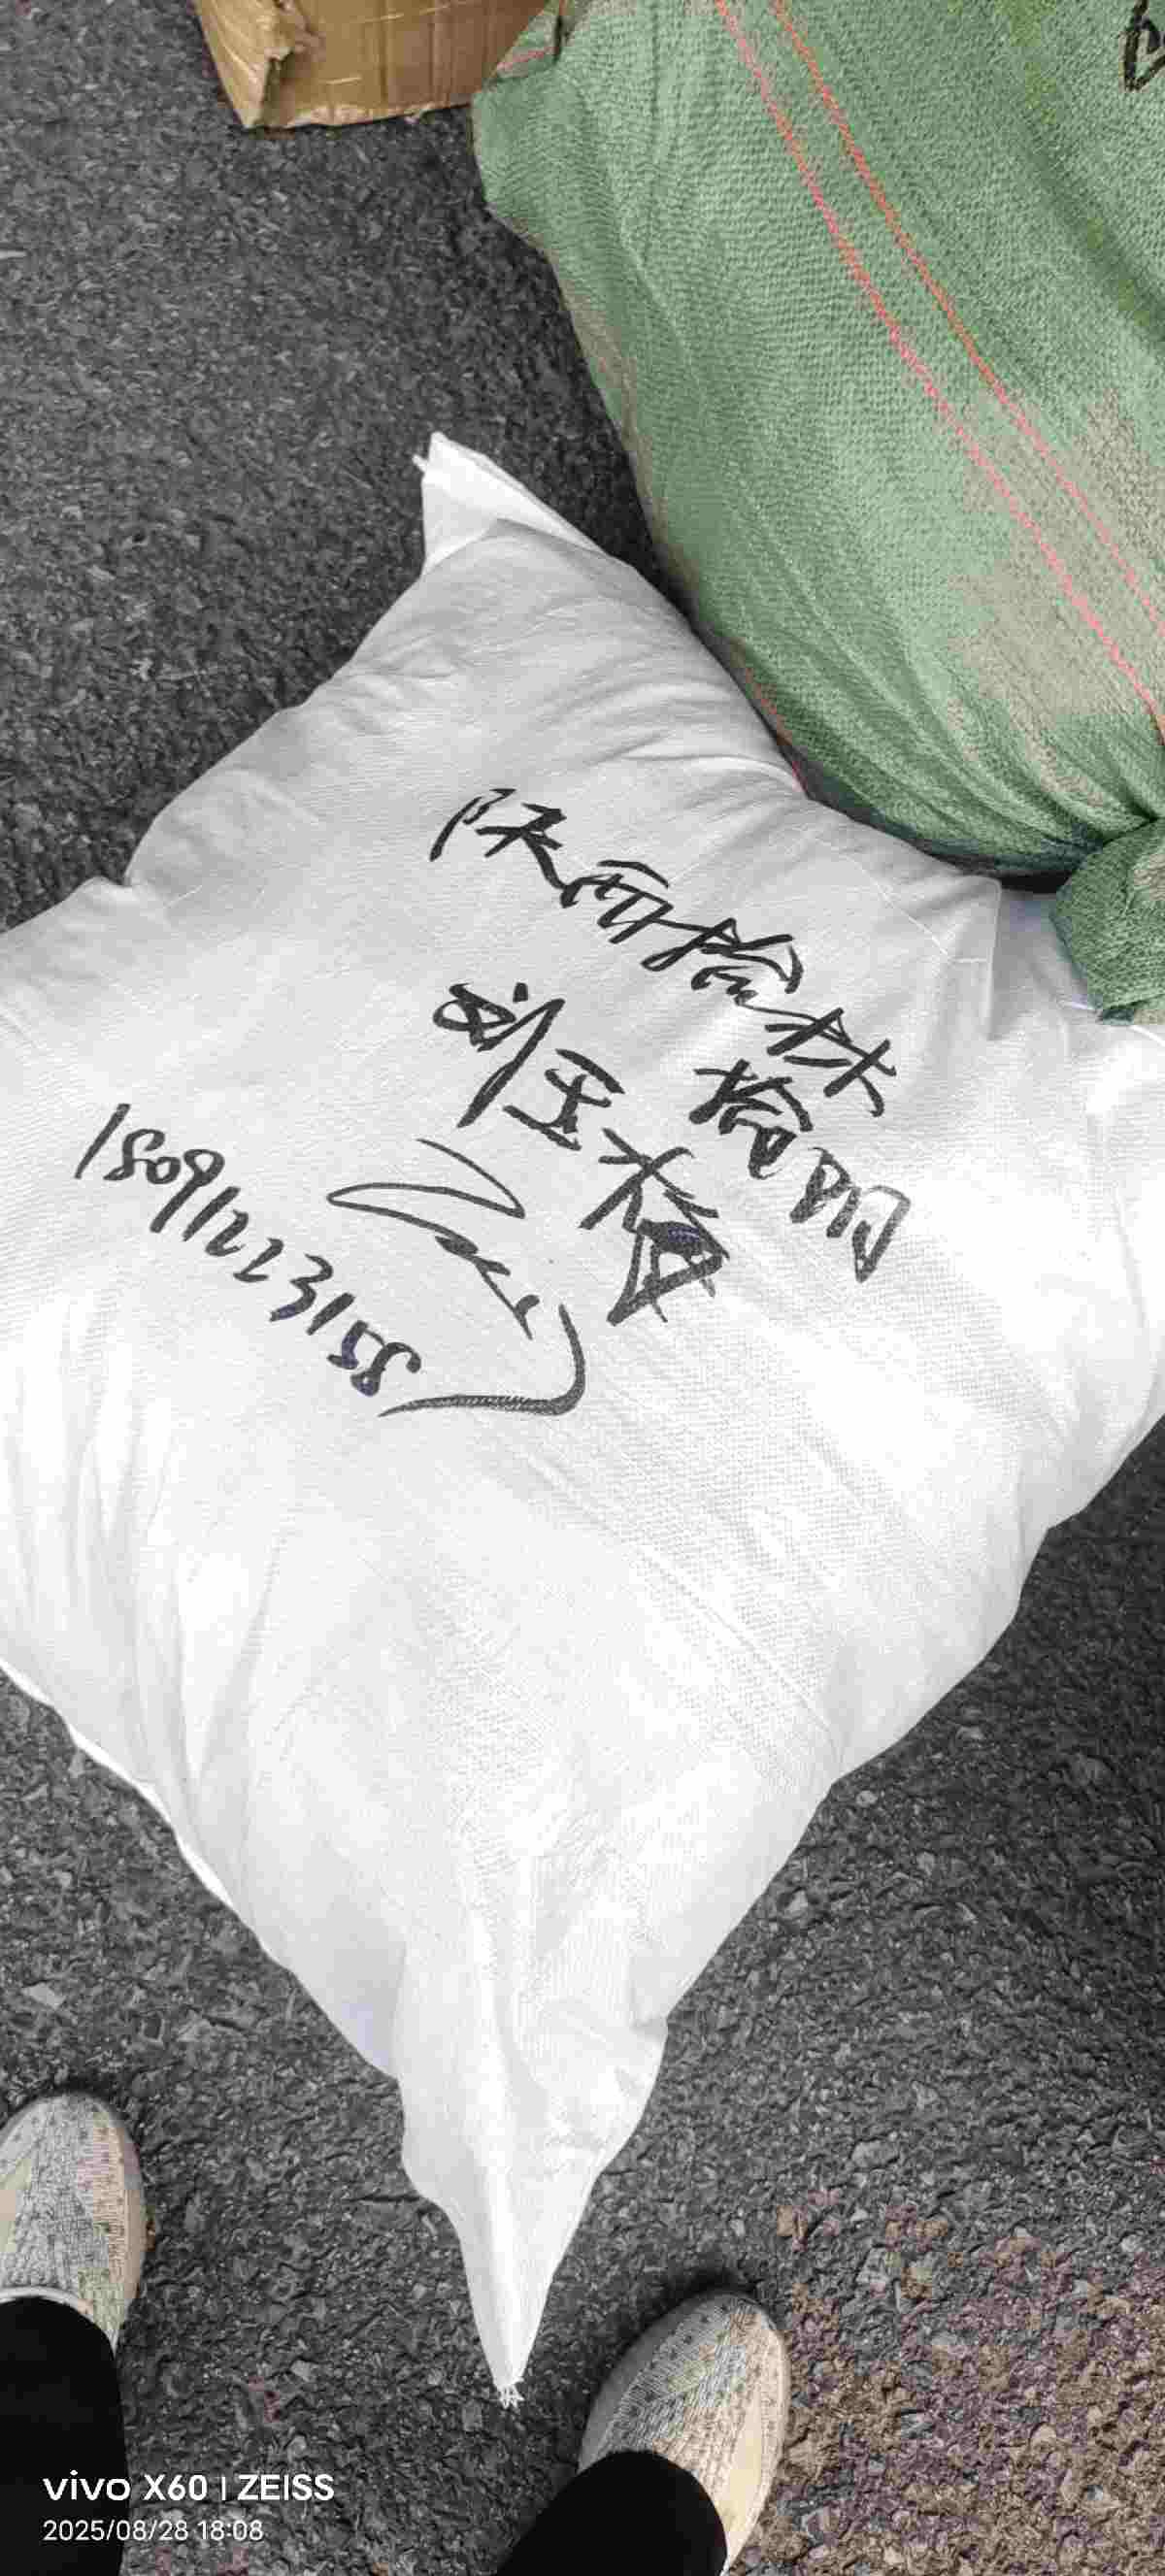 陕西榆林
榆阳
刘玉梅
18091223158
vivo X60 | ZEISS
2025/08/28 18:08